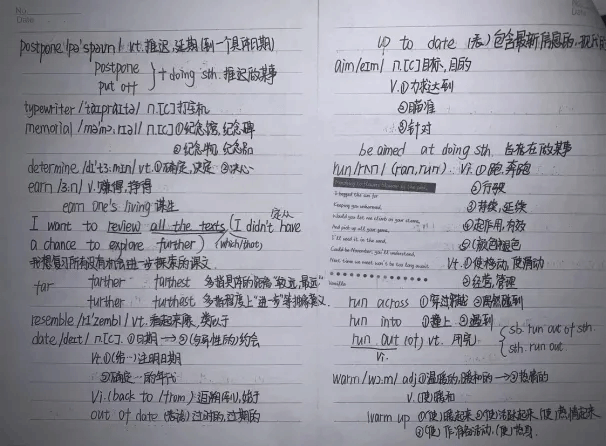 No.
Date
postpone /pə'spəʊn/ vt. 推迟,延期(到一个具体日期)
postpone
put off } + doing sth. 推迟做某事
typewriter /taɪpraɪtə/ n.[C]打字机
memorial /məmɔ:rɪəl/ n.[C]①纪念馆,纪念碑
②纪念物,纪念品
determine /dɪ'tɜ:mɪn/ vt. ①确定,决定 ②决心
earn /ɜ:n/ v.赚得,挣得
earn one's living 谋生
I want to review all the texts (I didn't have
定从
a chance to explore further) (which/that)
我想复习所有没有机会进一步探索的课文.
far farther farthest 多指具体的距离"较远,最远"
further furthest 多指程度上"进一步"等抽象意义.
resemble /rɪ'zembl/ vt. 看起来像,类似于
date /deɪt/ n.[C] ①日期 → ②(与异性的)约会
vt.①(给…)注明日期
②确定…的年代
vi.(back to /from) 追溯到,始于
out of date (表语)过时的,过期的
No.
Date
up to date (表)包含最新信息的,
aim/eɪm/ n.[C]目标,目的
v.①力求达到
②瞄准
③针对
be aimed at doing sth. 旨在做某事
run/rʌn/ (ran,run) vi.①跑,奔跑
②行驶
③持续,延续
④起作用,有效
I begged the sun for
Keeping you unburned,
⑤(颜色)褪色
And pick up all your game,
I'll need it in the end.
vt.①使移动,使滑动
②经营,管理
Vanilla
run across ①穿过 ②偶然碰到
run into ①撞上 ②遇到
run out (of) vt. 用完
vi.
{ sb. run out of sth.
sth. run out.
warm/wɔ:m/ adj①温暖的,暖和的→②热情的
v.(使)暖和
warm up ①(使)暖起来 ②(使)活跃起来,(使)热情起来
③(使)作准备活动,(使)热身.